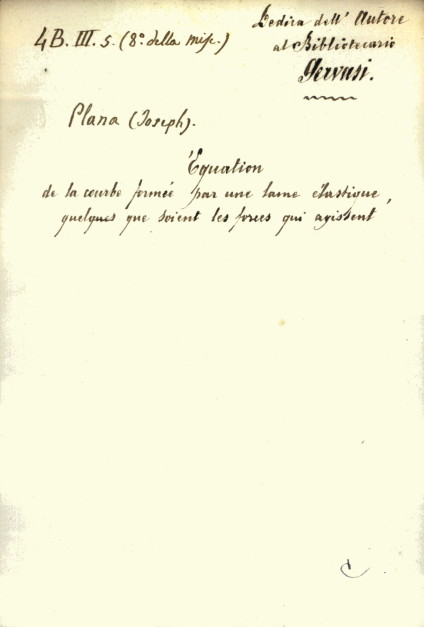 4B. III. 5. (8°. della misc.)
Dedica dell' Autore
al Bibliotecario
Gervasi.
Plana (Joseph).
Équation
de la courbe formée par une lame élastique,
quelques que soient les forces qui agissent